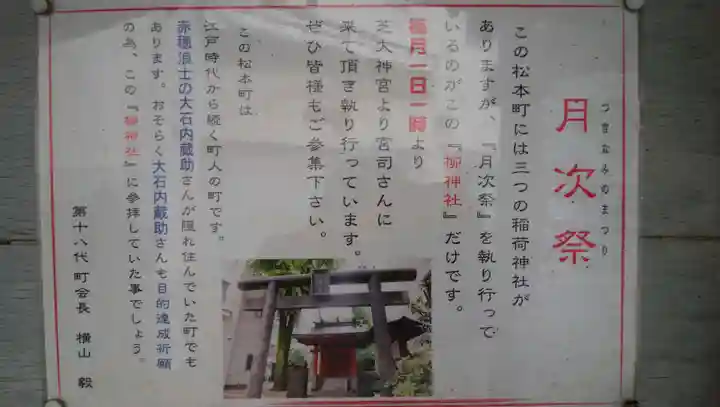 月次祭
つきなみのまつり
この松本町には三つの稲荷神社が
ありますが、『月次祭』を執り行って
いるのがこの『柳神社』だけです。
毎月一日一時より
芝大神宮より宮司さんに
来て頂き執り行っています。
ぜひ皆様もご参集下さい。
この松本町は
江戸時代から続く町人の町です。
赤穂浪士の大石内蔵助さんが隠れ住んでいた町でも
あります。おそらく大石内蔵助さんも目的達成祈願
の為、この『柳神社』に参拝していた事でしょう。
第十八代 町会長 横山 毅